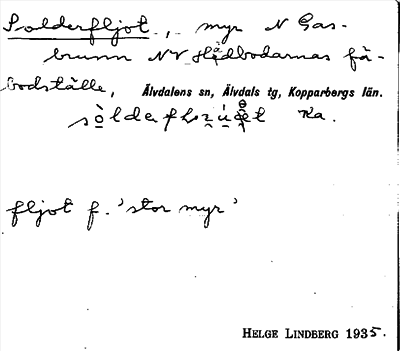 Solderfljot., myr N Gas-
brunn NV Hedbodarnas fä-
bodställe, Älvdalens sn, Älvdals tg, Kopparbergs län.
Ka.
fljot f. 'stor myr'
HELGE LINDBERG 1935.